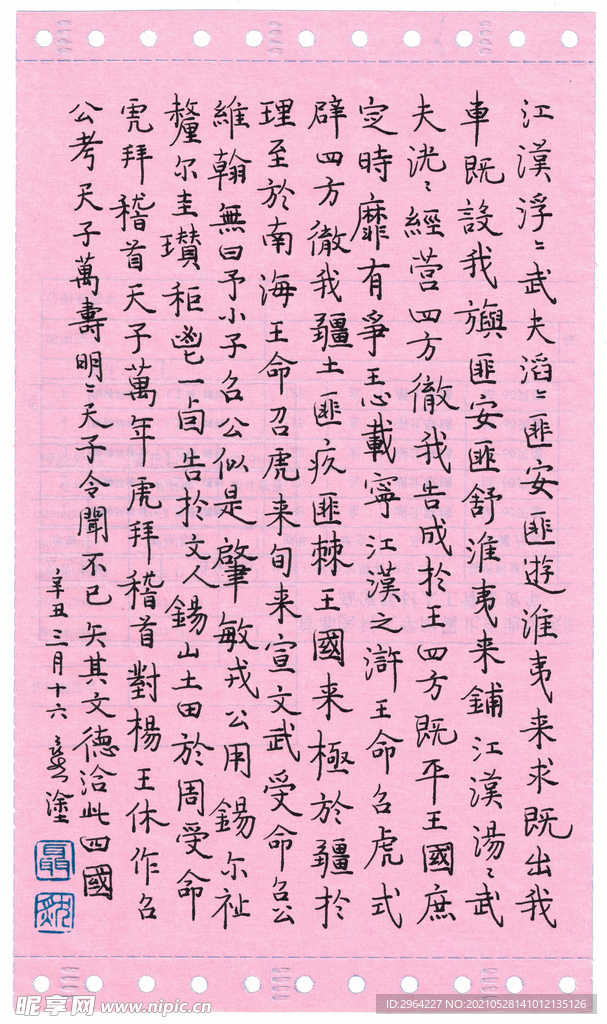 江漢浮〻武夫滔〻匪安匪遊淮夷来求既出我
車既設我旟匪安匪舒淮夷来鋪江漢湯〻武
夫洸〻經营四方徹我告成於王四方既平王國庶
定時靡有爭王心載寧江漢之滸王命召虎式
辟四方徹我疆土匪疚匪棘王國来極於疆於
理至於南海王命召虎来旬来宣文武受命召公
維翰無曰予小子召公似是肇敏戎公用錫尔祉
釐尔圭瓚秬鬯一卣告於文人錫山土田於周受命
虎拜稽首天子萬年虎拜稽首對楊王休作召
公考天子萬壽明〻天子令聞不已矢其文德洽此四國
辛丑三月十六 塗
昵享网 www.nipic.cn
ID:2964227 NO:20210528141012135126